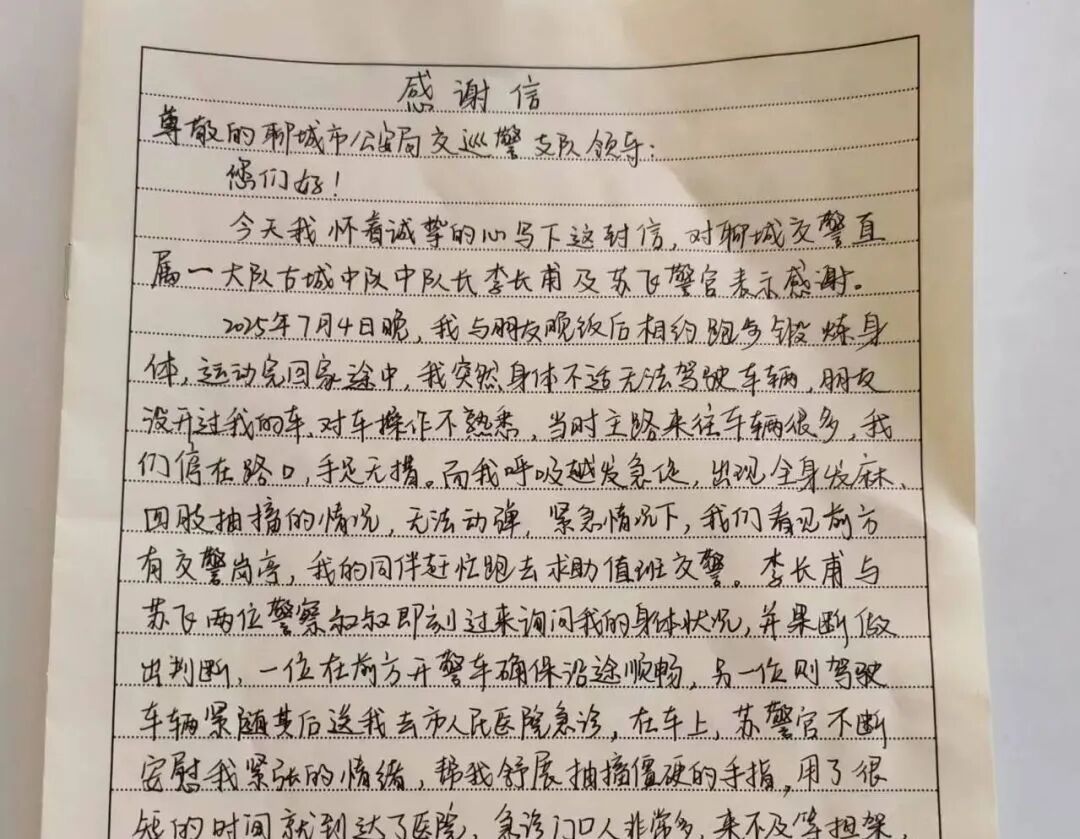 感谢信
尊敬的聊城市公安局交巡警支队领导：
您们好！
今天我怀着诚挚的心写下这封信，对聊城交警直
属一大队古城中队中队长李长甫及苏飞警官表示感谢。
2025年7月4日晚，我与朋友晚饭后相约跑步锻炼身
体，运动完回家途中，我突然身体不适无法驾驶车辆，朋友
没开过我的车，对车操作不熟悉，当时主路来往车辆很多，我
们停在路口，手足无措。而我呼吸越发急促，出现全身发麻、
四肢抽搐的情况，无法动弹，紧急情况下，我们看见前方
有交警岗亭，我的同伴赶忙跑去求助值班交警。李长甫与
苏飞两位警察叔叔即刻过来询问我的身体状况，并果断做
出判断，一位在前方开警车确保沿途顺畅，另一位则驾驶
车辆紧随其后送我去市人民医院急诊，在车上，苏警官不断
安慰我紧张的情绪，帮我舒展抽搐僵硬的手指，用了很
短的时间就到达了医院，急诊门口人非常多，来不及等担架，